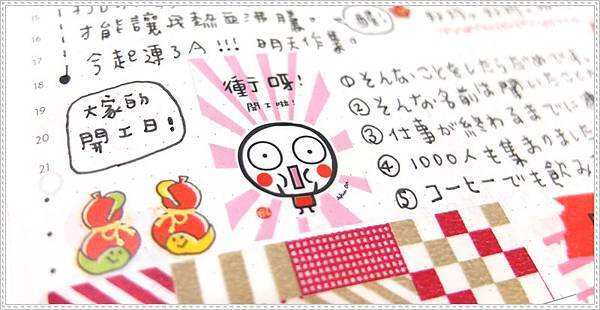 才能讓我熱血沸騰。
今起連3A!!! 明天作集。
15
16
17
18
19
20
21
大家的
開工日!
衝呀!
開工啦!
①そんなことをしたらだめです。
②そんな名前は聞いたこと
③仕事が終わるまでに
④1000人も集まりました
⑤コーヒーでも飲み